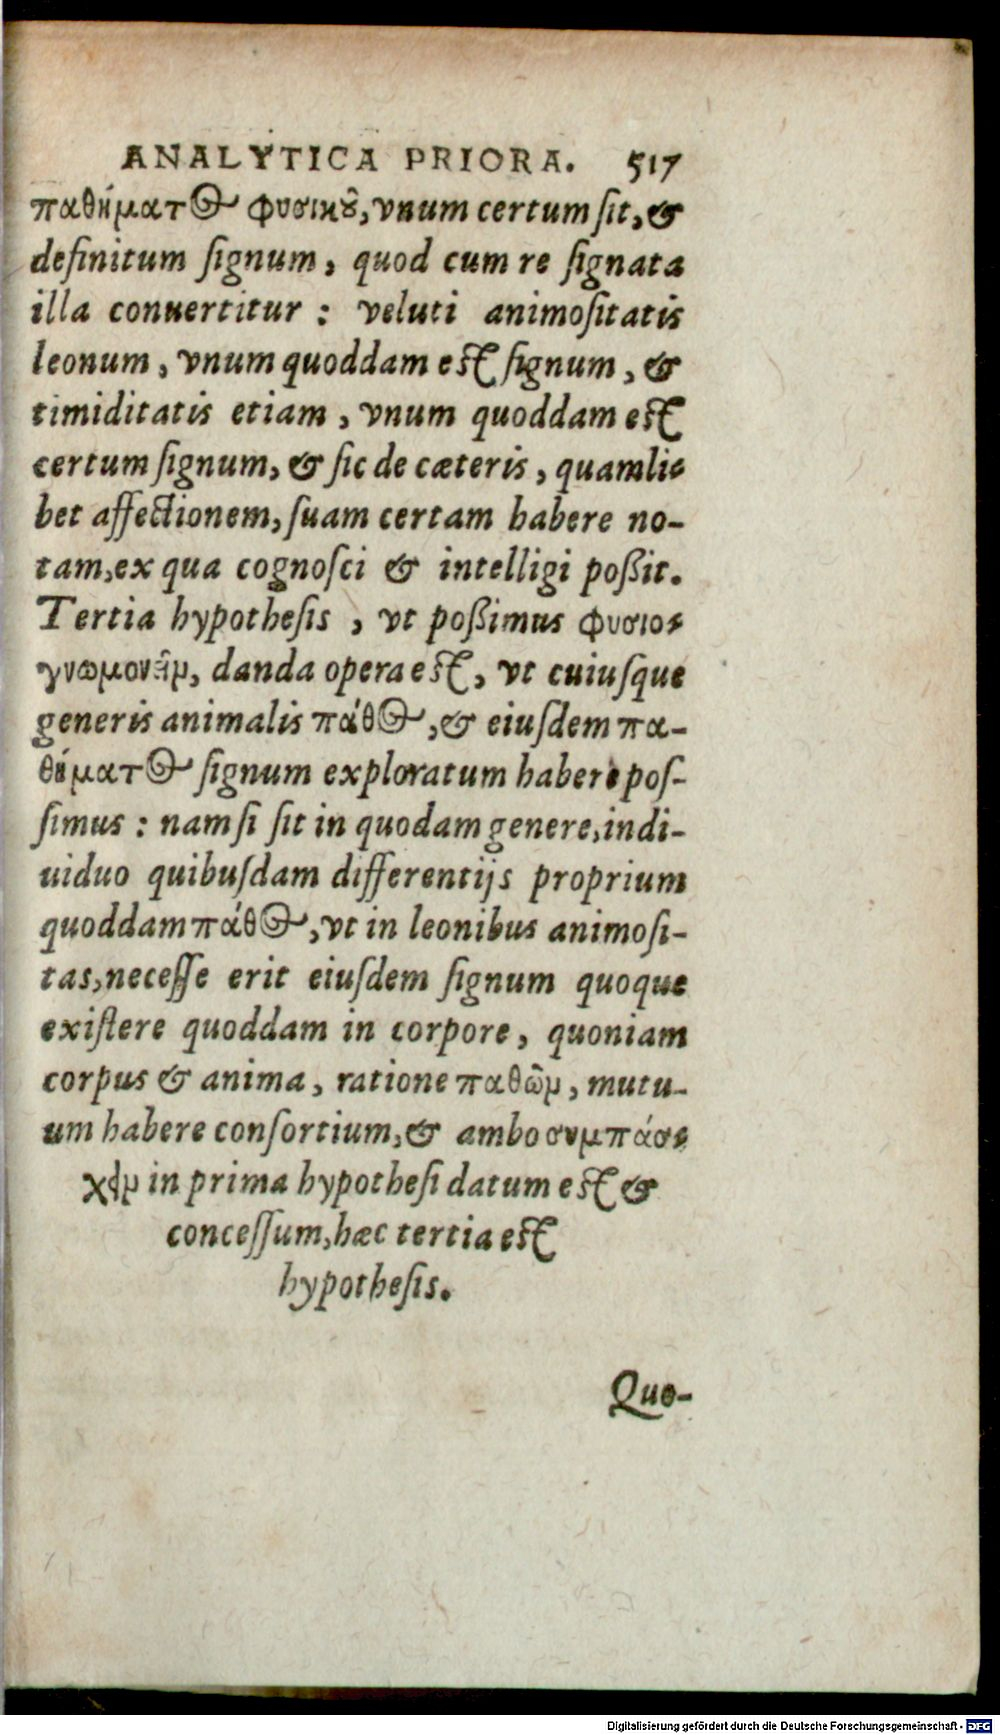 ANALYTICA PRIORA. 517
παθήματος φυσικοῦ, vnum certum ſit, &
definitum ſignum, quod cum re ſignata
illa conuertitur : veluti animoſitatis
leonum, vnum quoddam eſt ſignum, &
timiditatis etiam, vnum quoddam eſt
certum ſignum, & ſic de cæteris, quamli-
bet affectionem, ſuam certam habere no-
tam, ex qua cognoſci & intelligi poßit.
Tertia hypotheſis, vt poßimus φυσιο-
γνωμονεῖν, danda opera eſt, vt cuiuſque
generis animalis πάθος, & eiuſdem πα-
θήματος ſignum exploratum habere poſ-
ſimus : nam ſi ſit in quodam genere, indi-
uiduo quibuſdam differentijs proprium
quoddam πάθος, vt in leonibus animoſi-
tas, neceſſe erit eiuſdem ſignum quoque
exiſtere quoddam in corpore, quoniam
corpus & anima, ratione παθῶν, mutu-
um habere conſortium, & ambo συμπάσ-
χειν in prima hypotheſi datum eſt &
conceſſum, hæc tertia eſt
hypotheſis.
Quo-
Digitalisierung gefördert durch die Deutsche Forschungsgemeinschaft - DFG